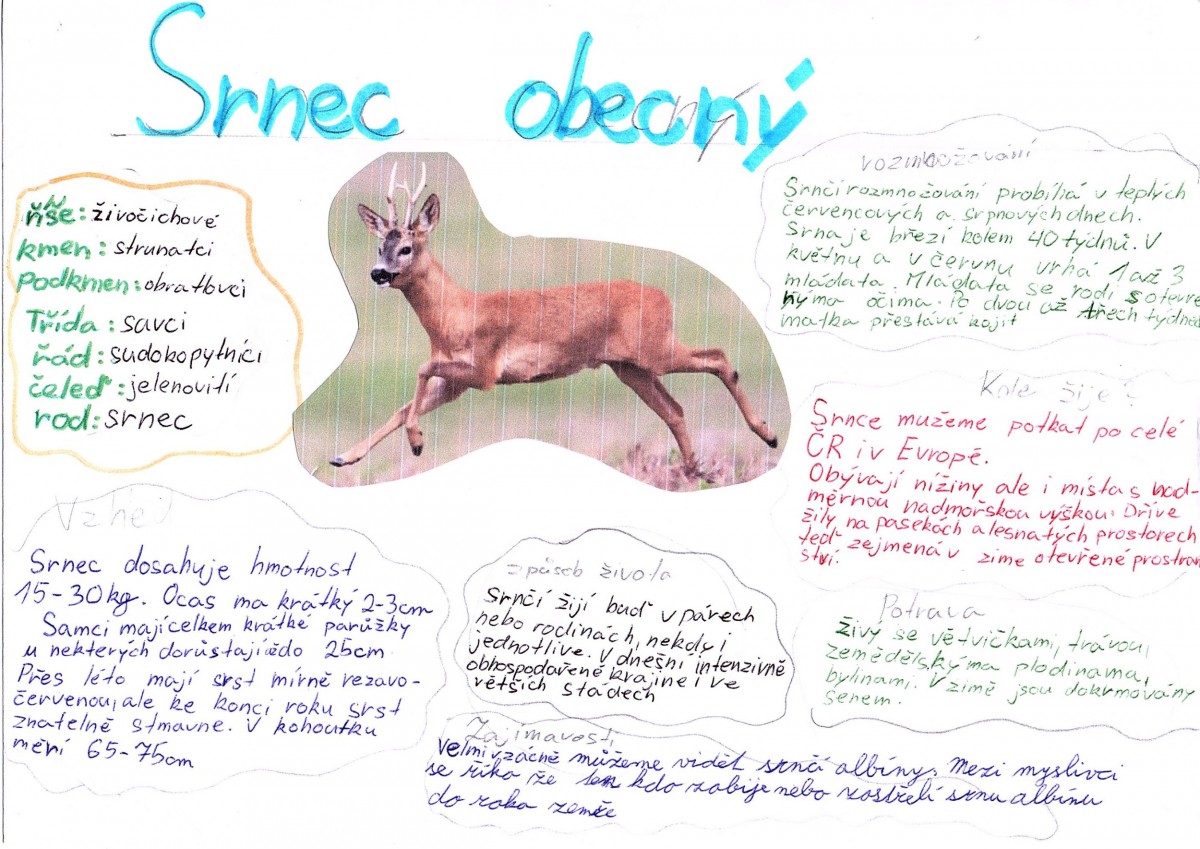 Srnec obecný
říše: živočichové
kmen: strunatci
Podkmen: obratlovci
Třída: savci
řád: sudokopytníci
čeleď: jelenovití
rod: Srnec
rozmnožování
Srnčí rozmnožování probíhá v teplých
červencových a srpnových dnech.
Srna je březí kolem 40 týdnů. V
květnu a v červnu vrhá 1 až 3
mláďata. Mláďata se rodí s otevře
nýma očima. Po dvou až třech týdnech
matka přestává kojit
Kde žije?
Srnce mužeme potkat po celé
ČR i v Evropě.
Obývají nížiny ale i místa s nad-
měrnou nadmořskou výškou. Dříve
žily na pasekách a lesnatých prostorech
teď zejmená v zime otevřené prostran
ství.
Vzhled
Srnec dosahuje hmotnost
15-30kg. Ocas ma krátký 2-3cm
Samci mají celkem krátké parůžky
u nekterých dorůstají do 25cm
Přes léto mají srst mírně rezavo-
červenou, ale ke konci roku srst
znatelně stmavne. V kohoutku
měří 65-75cm
způsob života
Srnčí žijí buď v párech
nebo rodinách, nekdy i
jednotlive. V dnešní intenzivně
obhospodařené krajine i ve
větších stádech
Potrava
živý se větvičkami, trávou,
zemědělský ma plodinama,
bylinami. V zimě jsou dokrmovány
senem.
Zajímavosti
Velmi vzácně můžeme vidět srnčí albíny. Mezi myslivci
se říka že ten kdo zabije nebo zastřelí srnu albínu
do roka zemře